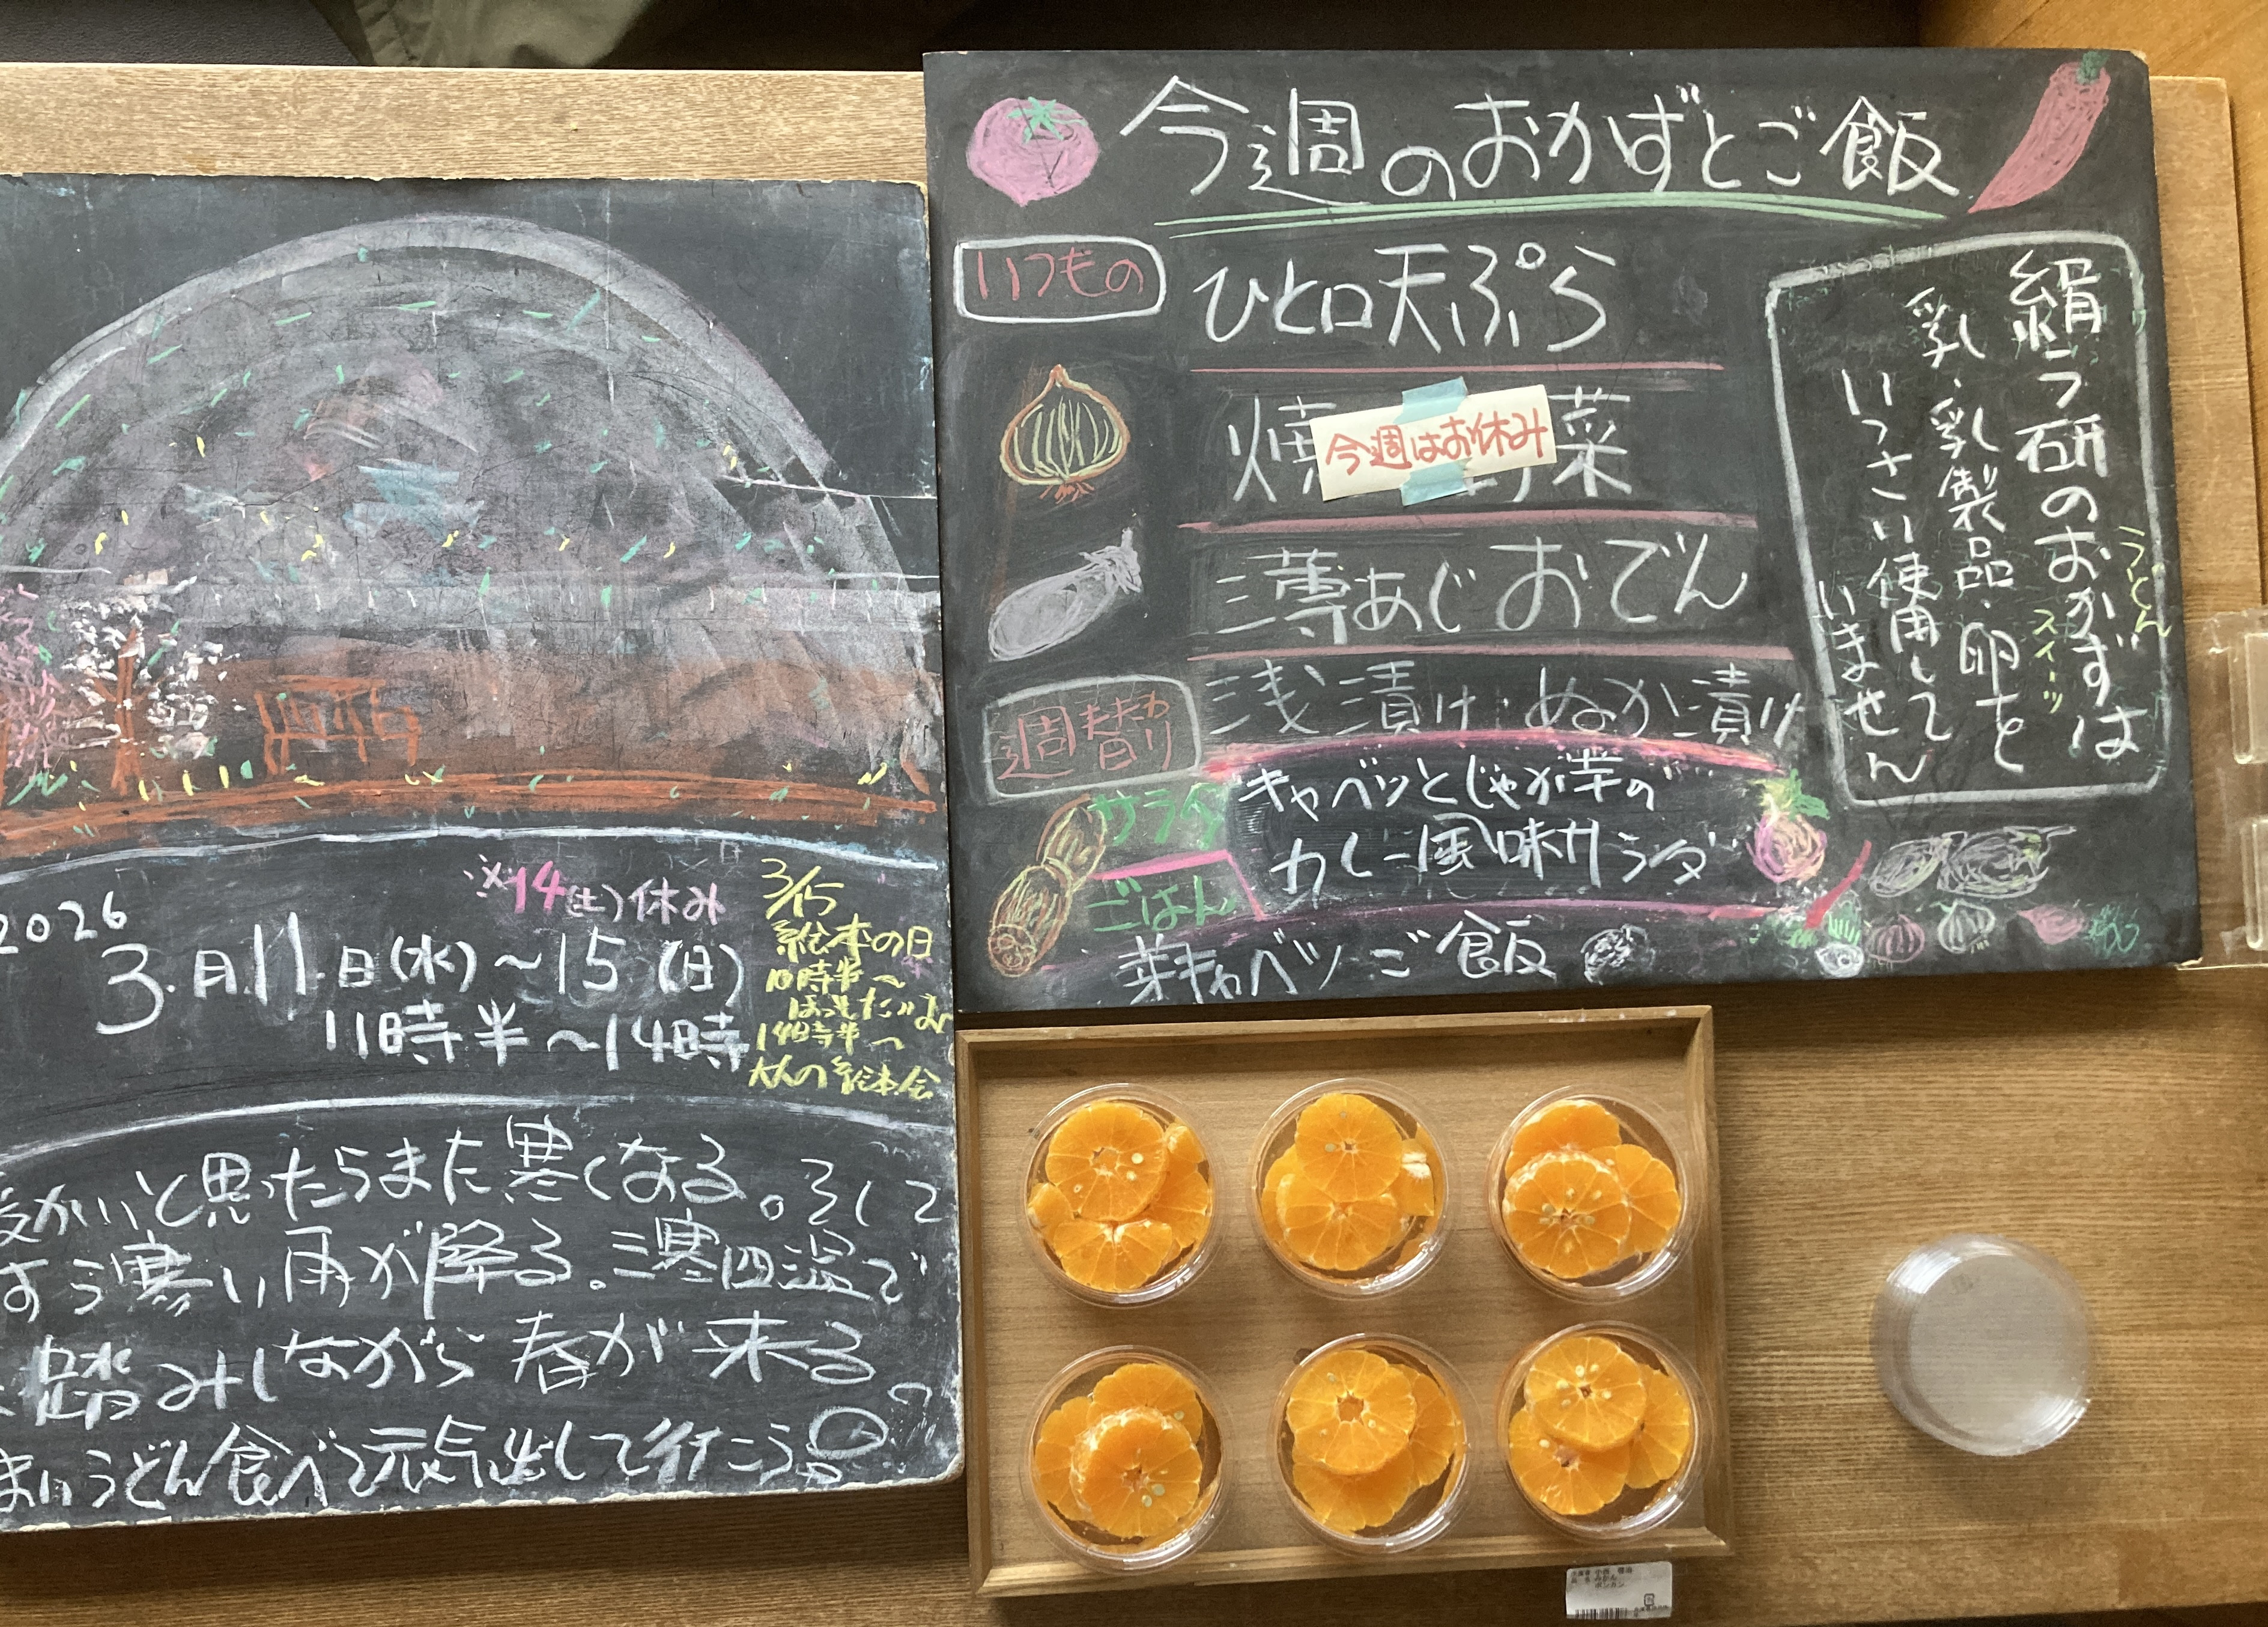 今週のおかずとご飯
いつもの
ひと口天ぷら
焼
今週はお休み
菜
薄あじおでん
浅漬け・ぬか漬け
週替わり
日替り
サラダ
キャベツとじゃが芋の
カレー風味サラダ
ごはん
芽キャベツご飯
絹ラ研のおかずは
うどん
スイーツ
乳・乳製品・卵を
いっさい使用して
いません
2026
※14(土)休み
3月11日(水)～15(日)
11時半～14時
3/15
絵本の日
10時半～
14時半～
大人の絵本会
かいと思ったらまた寒くなる。そして
すう寒い雨が降る。三寒四温で
踏みしながら春が来る。
まいうどん食べて元気出して行こう。
みかん
ポンカン